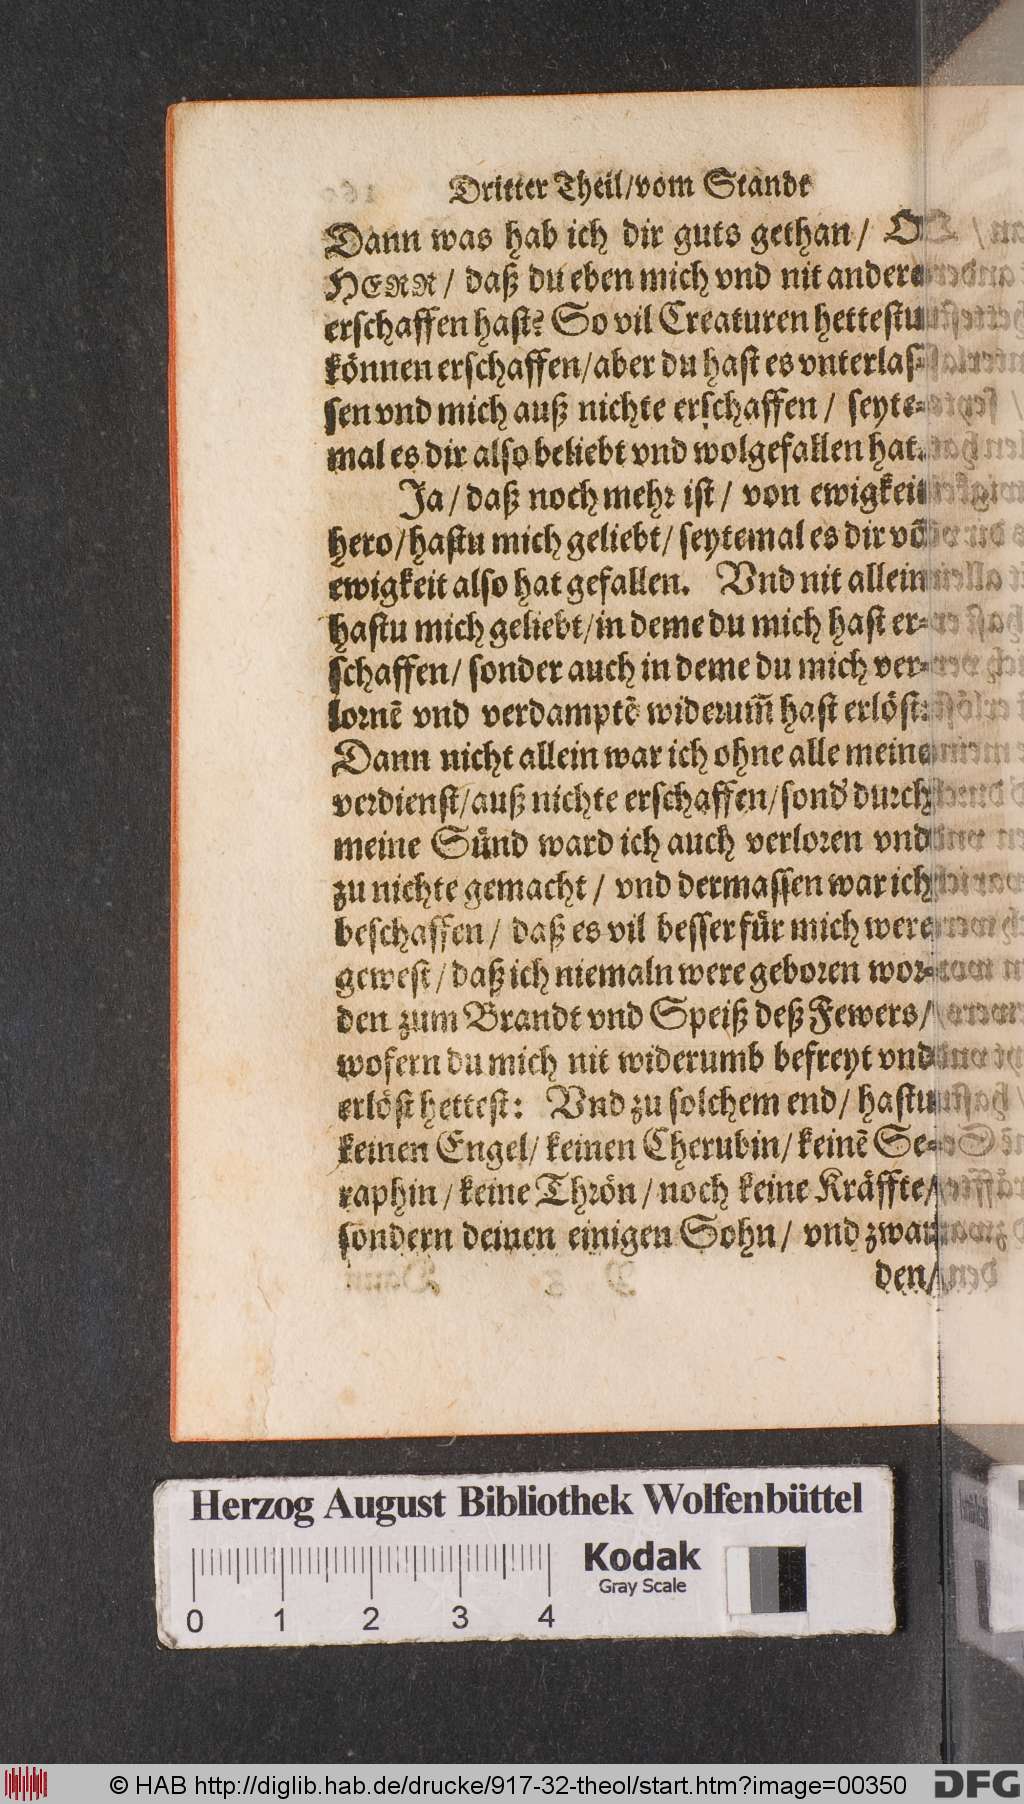 Dritter Theil/vom Standt
Dann was hab ich dir guts gethan/ O
HERR/ daß du eben mich vnd nit andere
erschaffen hast? So vil Creaturen hettestu
können erschaffen/aber du hast es vnterlas-
sen vnd mich auß nichte erschaffen/ seyte-
mal es dir also beliebt vnd wolgefallen hat.
Ja/ daß noch mehr ist/ von ewigkeit
hero/hastu mich geliebt/ seytemal es dir võ
ewigkeit also hat gefallen. Vnd nit allein
hastu mich geliebt/in deme du mich hast er-
schaffen/ sonder auch in deme du mich ver-
lornẽ vnd verdamptẽ widerum̃ hast erlöst:
Dann nicht allein war ich ohne alle meine
verdienst/auß nichte erschaffen/sond' durch
meine Sünd ward ich auch verloren vnd
zu nichte gemacht/ vnd dermassen war ich
beschaffen/ daß es vil besser für mich were
gewest/daß ich niemaln were geboren wor-
den zum Brandt vnd Speiß deß Fewers/
wofern du mich nit widerumb befreyt vnd
erlöst hettest: Vnd zu solchem end/ hastu
keinen Engel/ keinen Cherubin/ keinẽ Se-
raphin/keine Thrön/noch keine Kräffte/
sondern deinen einigen Sohn/ vnd zwar
den/
Herzog August Bibliothek Wolfenbüttel
Kodak
Gray Scale
0 1 2 3 4
© HAB http://diglib.hab.de/drucke/917-32-theol/start.htm?image=00350
DFG